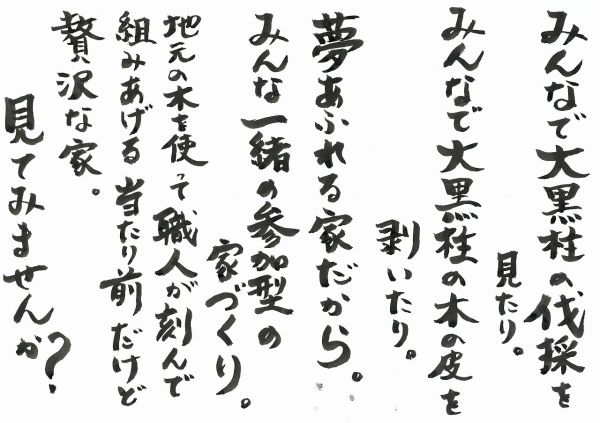 みんなで大黒柱の伐採を
見たり。
みんなで大黒柱の木の皮を
剥いたり。
夢あふれる家だから。
みんな一緒の参加型の
家づくり。
地元の木を使って、職人が刻んで
組みあげる当たり前だけど
贅沢な家。
見てみませんか？